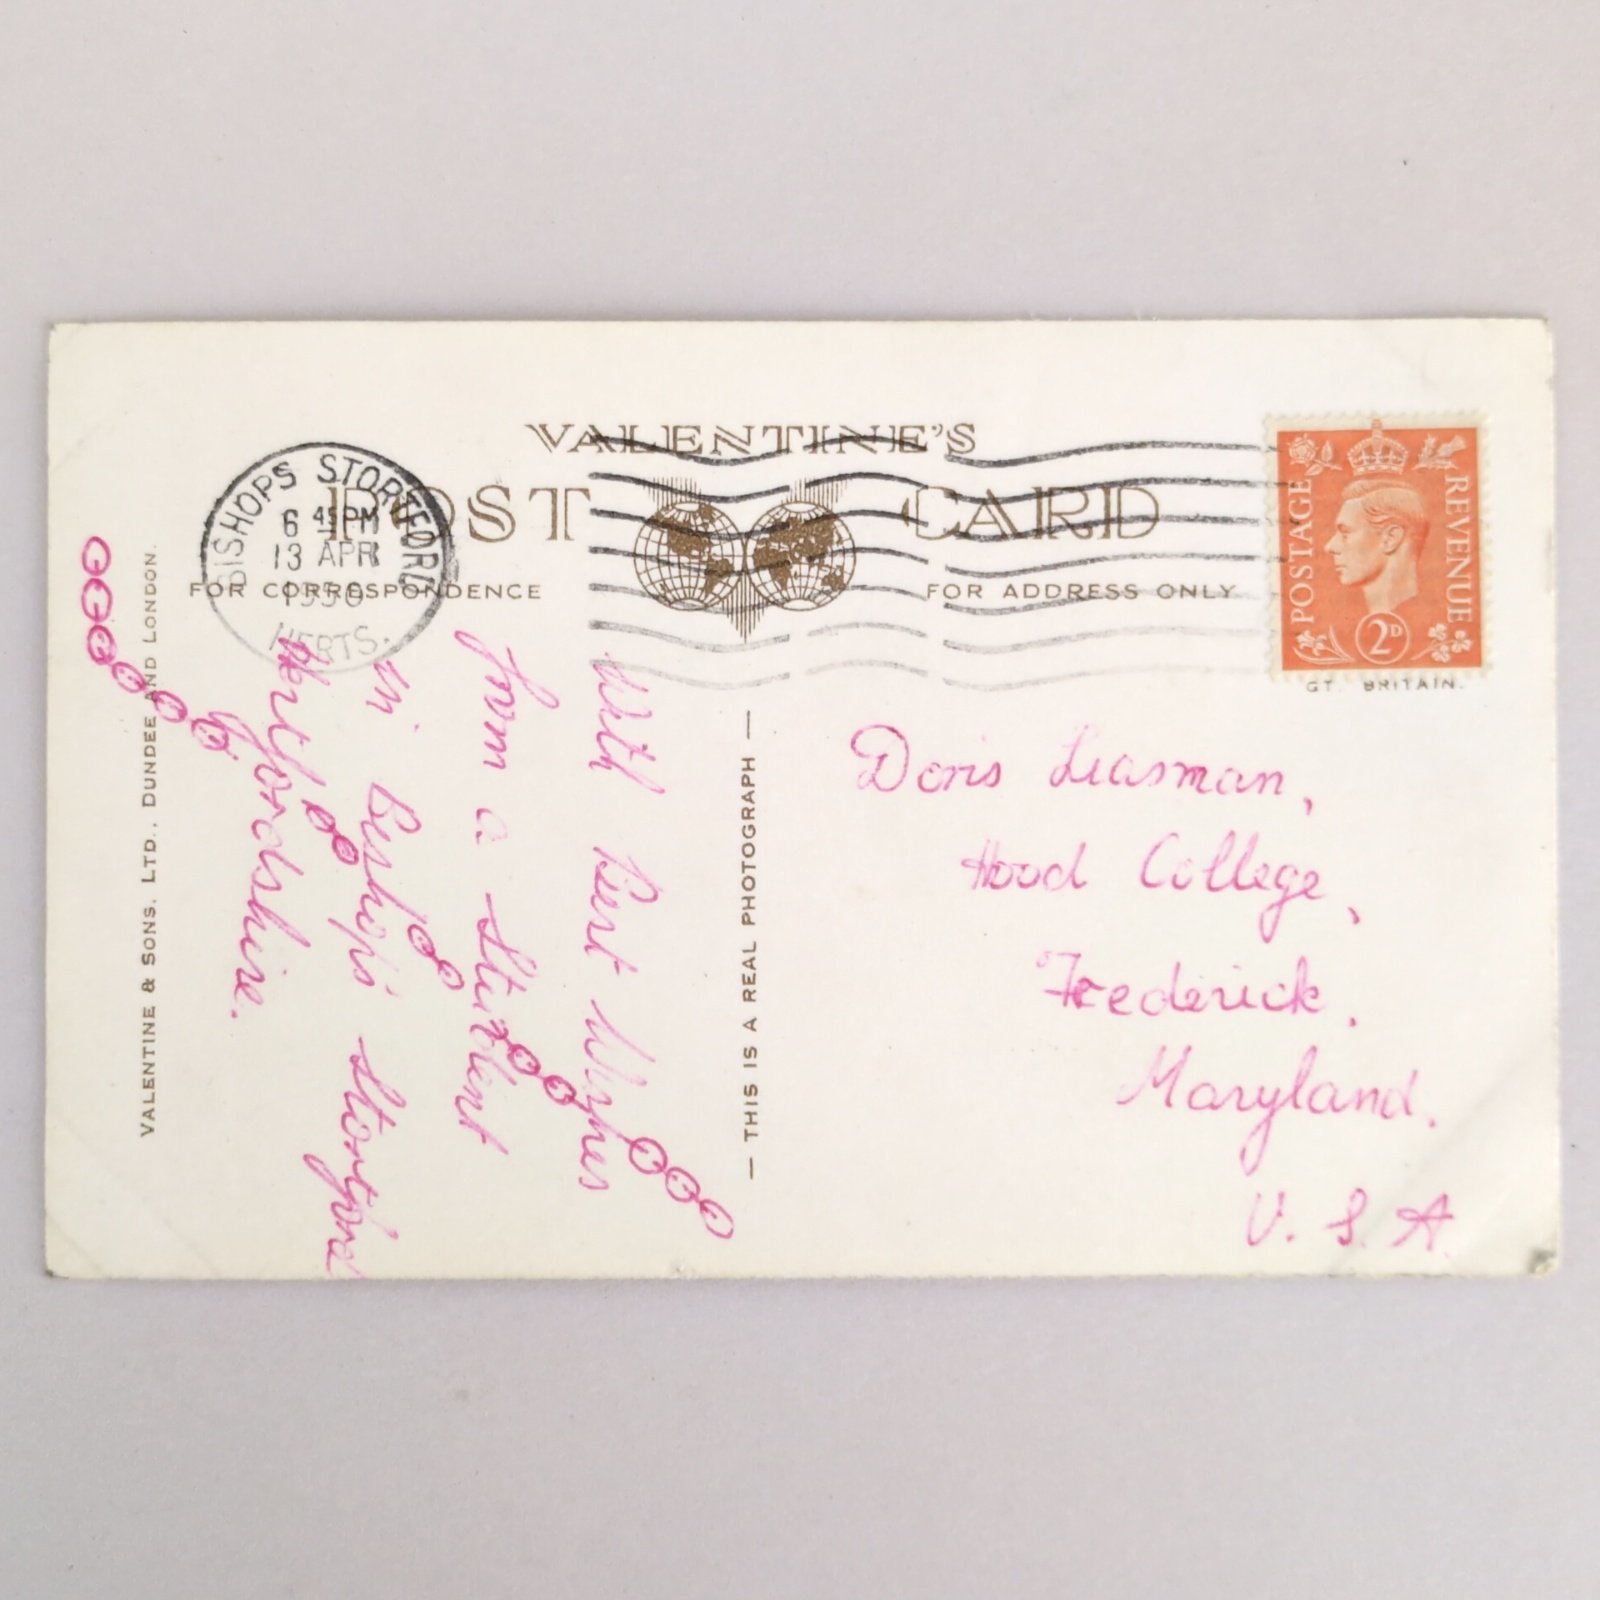 VALENTINE'S
POST CARD
BISHOPS STORTFORD
6 45 PM
13 APR
1950
HERTS.
FOR CORRESPONDENCE
FOR ADDRESS ONLY
POSTAGE REVENUE
2D
GT. BRITAIN.
With Best Wishes
from a Student
in Bishop's Stortford
Hertfordshire.
Doris Leasman,
Hood College,
Frederick,
Maryland.
U. S. A.
— THIS IS A REAL PHOTOGRAPH —
VALENTINE & SONS, LTD., DUNDEE AND LONDON.